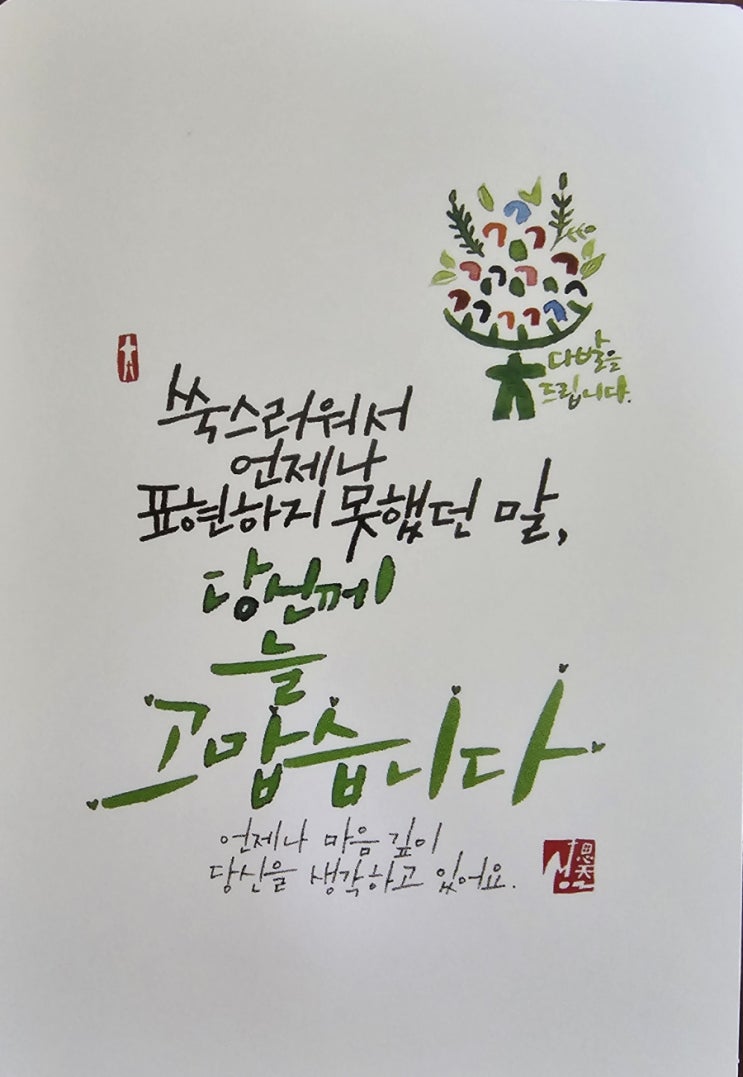 다발을
드립니다.
쑥스러워서
언제나
표현하지 못했던 말,
당신께
늘
고맙습니다
언제나 마음 깊이
당신을 생각하고 있어요.